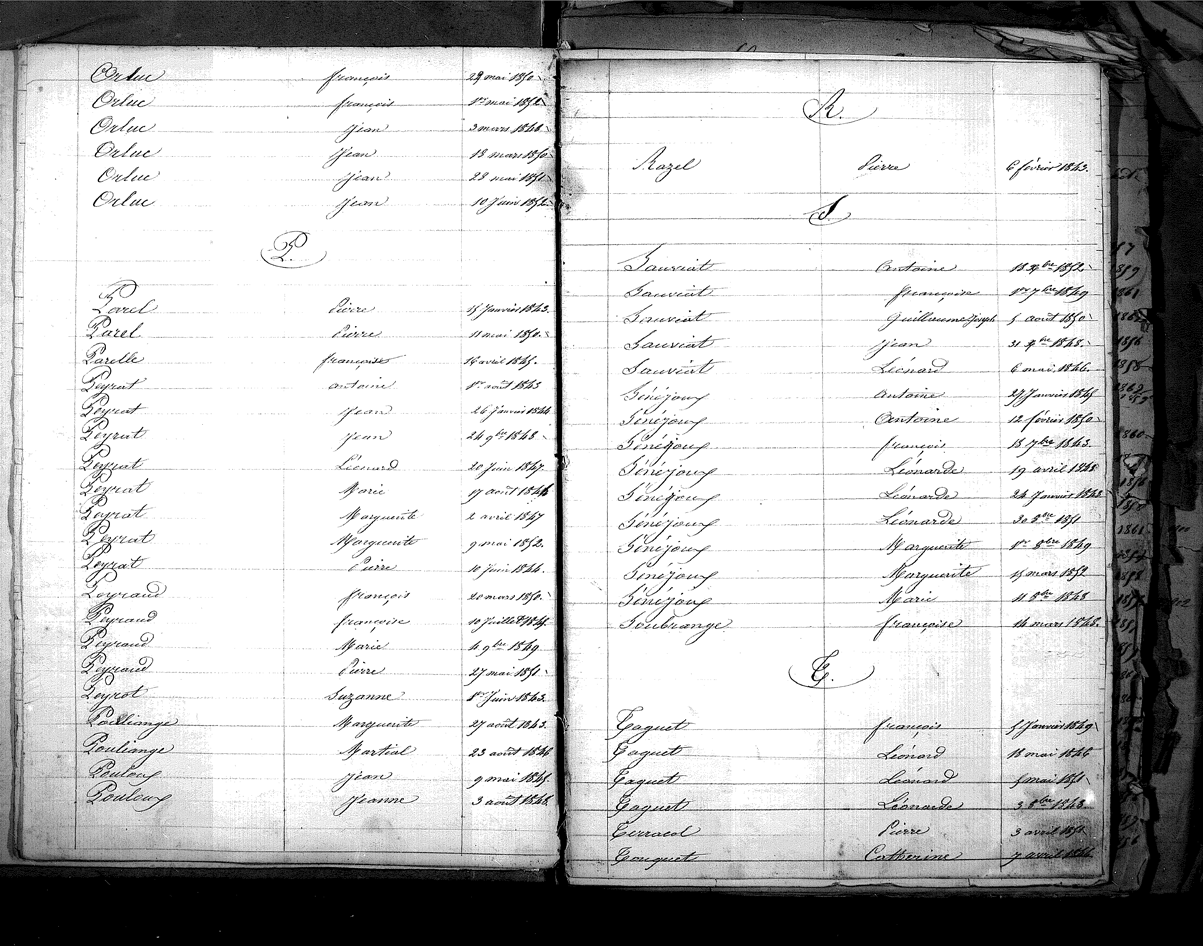 Orluc françois 29 mai 1850
Orluc françois 1er mai 1852
Orluc Jean 3 mars 1848
Orluc Jean 18 mars 1850
Orluc Jean 28 mai 1851
Orluc Jean 10 Juin 1852
P.
Parel Pierre 15 Janvier 1843.
Parel Pierre 11 mai 1850.
Parelle françoise 16 avril 1845.
Peyrat antoine 1er août 1843
Peyrat Jean 26 Janvier 1844
Peyrat Jean 24 9bre 1848
Peyrat Léonard 20 Juin 1847.
Peyrat Marie 17 août 1844
Peyrat Marguerite 2 avril 1847
Peyrat Marguerite 9 mai 1852.
Peyrat Pierre 10 Juin 1844.
Peyraud françois 20 mars 1850.
Peyraud françoise 10 Juillet 1845.
Peyraud Marie 4 9bre 1849
Peyraud Pierre 27 mai 1851
Peyrot Suzanne 1er Juin 1843.
Pouliange Marguerite 27 août 1843.
Pouliange Martial 23 août 1846
Pouloux Jean 9 mai 1845.
Pouloux Jeanne 3 août 1848.
R.
Razel Pierre 6 février 1843.
S.
Sauviat Antoine 18 Xbre 1852
Sauviat françoise 1er 7bre 1849
Sauviat Guillaume Joseph 5 août 1850
Sauviat Jean 31 Xbre 1848.
Sauviat Léonard 6 mai 1846.
Sénéjoux Antoine 27 Janvier 1845
Sénéjoux Antoine 12 février 1850
Sénéjoux françois 18 7bre 1843.
Sénéjoux Léonarde 19 avril 1848
Sénéjoux Léonarde 24 Janvier 1843
Sénéjoux Léonarde 30 8bre 1851
Sénéjoux Marguerite 1er 8bre 1849
Sénéjoux Marguerite 15 mars 1852
Sénéjoux Marie 11 8bre 1848
Soubrange françoise 14 mars 1848.
T.
Taquet françois 5 Janvier 1849
Taquet Léonard 18 mai 1846
Taquet Léonard 5 mai 1851
Taquet Léonarde 3 8bre 1843
Terracol Pierre 3 avril 1851
Touquet Catherine 7 avril 1846